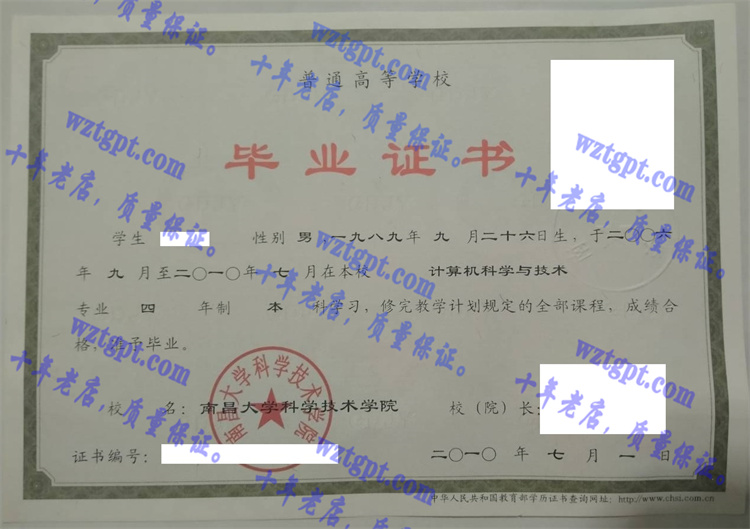 普通高等学校
毕业证书
学生 性别 男，一九八九年 九 月二十六日生，于二〇〇六
年 九 月至二〇一〇年 七 月在本校 计算机科学与技术
专业 四 年制 本 科学习，修完教学计划规定的全部课程，成绩合
格，准予毕业。
校 名：南昌大学科学技术学院 校（院）长：
证书编号： 二〇一〇 年 七 月 一 日
中华人民共和国教育部学历证书查询网址：http://www.chsi.com.cn
南昌大学科学技术学院
十年老店，质量保证。
wztgpt.com
十年老店，质量保证。
wztgpt.com
十年老店，质量保证。
wztgpt.com
十年老店，质量保证。
wztgpt.com
十年老店，质量保证。
wztgpt.com
十年老店，质量保证。
wztgpt.com
十年老店，质量保证。
wztgpt.com
十年老店，质量保证。